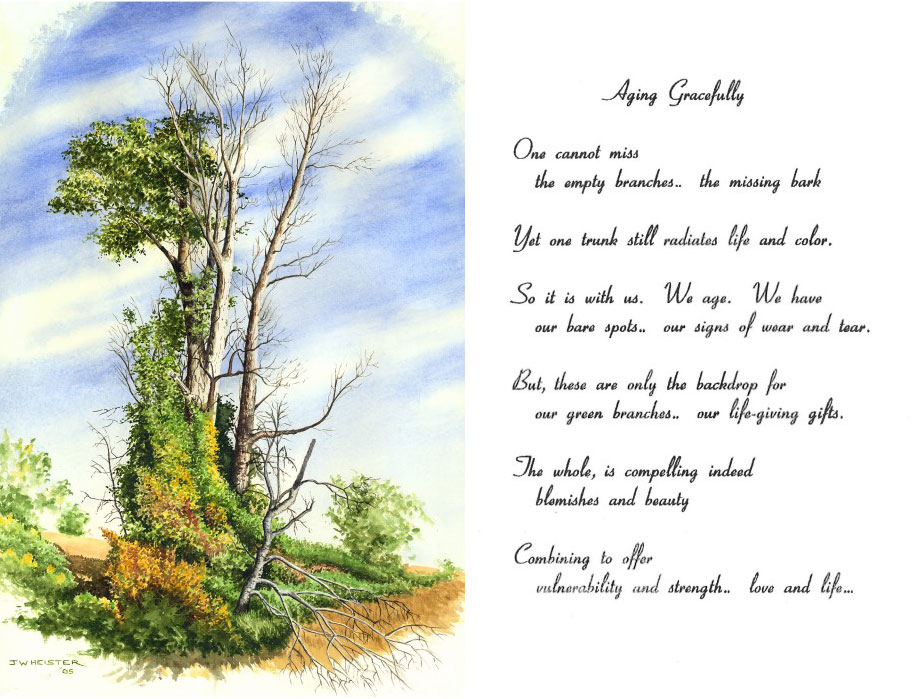 Aging Gracefully
One cannot miss
the empty branches.. the missing bark
Yet one trunk still radiates life and color.
So it is with us. We age. We have
our bare spots.. our signs of wear and tear.
But, these are only the backdrop for
our green branches.. our life-giving gifts.
The whole, is compelling indeed
blemishes and beauty
Combining to offer
vulnerability and strength.. love and life...
JWHEISTER
'05